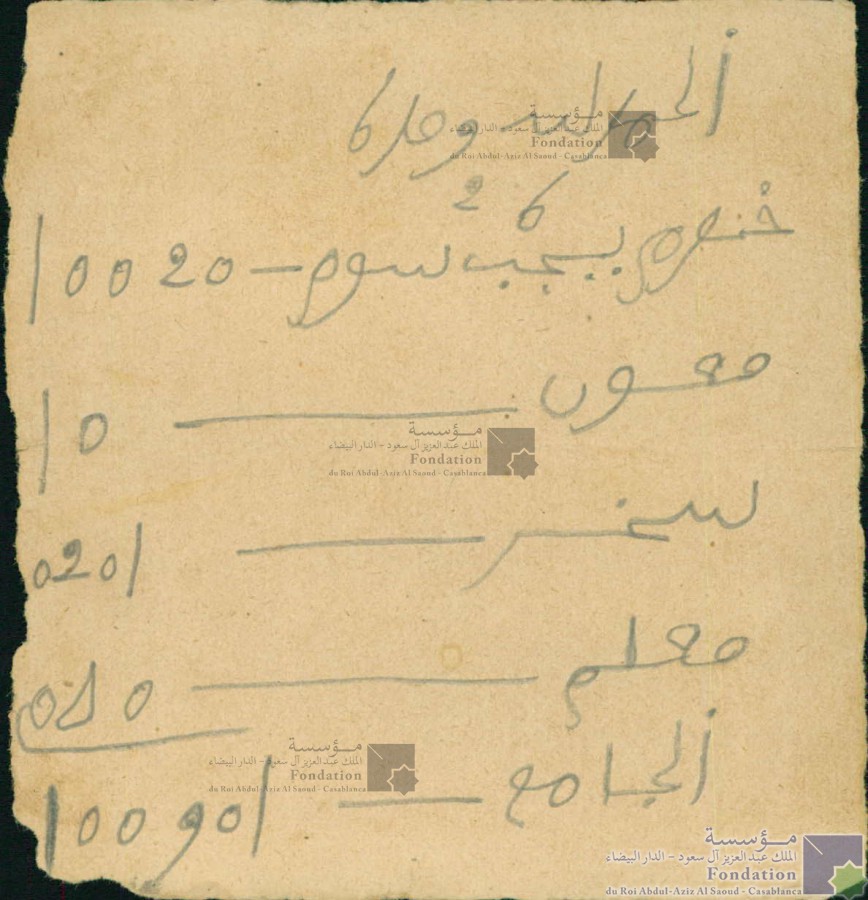 الحمد لله وحده
2 6
خنصر يبيجب سوم — 10020
معون — 10
سخر — 0201
معلم — 050
الجامع — 100901
مؤسسة
الملك عبد العزيز آل سعود - الدار البيضاء
Fondation
du Roi Abdul-Aziz Al Saoud - Casablanca
مؤسسة
الملك عبد العزيز آل سعود - الدار البيضاء
Fondation
du Roi Abdul-Aziz Al Saoud - Casablanca
مؤسسة
الملك عبد العزيز آل سعود - الدار البيضاء
Fondation
du Roi Abdul-Aziz Al Saoud - Casablanca
مؤسسة
الملك عبد العزيز آل سعود - الدار البيضاء
Fondation
du Roi Abdul-Aziz Al Saoud - Casablanca